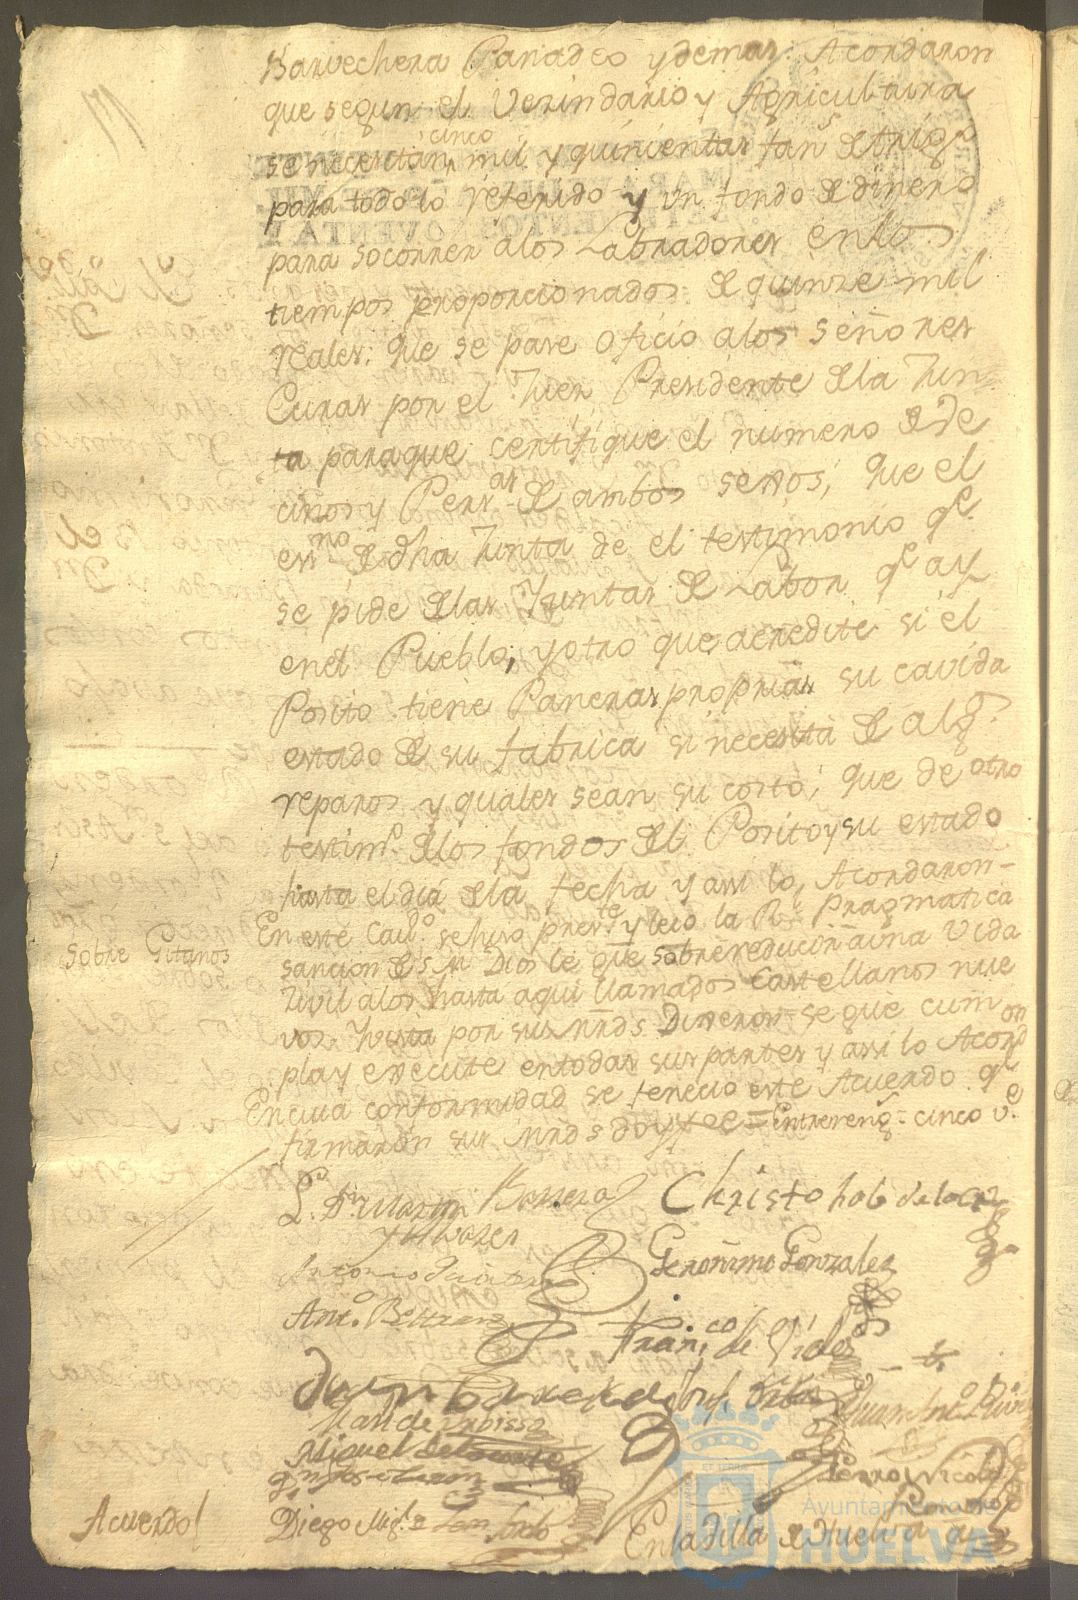 Barvechera Panadeo y demas. Acordaron
que segun el Vecindario y Agricultura
se necesitan cinco mil y quinientas fans de trigo
para todo lo referido y un fondo de dinero
para socorrer a los Labradores en los
tiempos proporcionados de quinze mil
reales: que se pase oficio a los señores
Curas por el Juez Presidente de la Jun
ta para que certifique el numero de ve
cinos y Persas de ambos sexos; que el
esno de dha Junta de el testimonio qe
se pide de las Yuntas de Labor qe ay
en el Pueblo; y otro que acredite si el
Posito tiene Paneras proprias su cavida
estado de su fabrica si necesita de algs
reparos y quales sean su costo; que de otro
testimo de los fondos del Posito y su estado
hasta el dia de la fecha y assi lo Acordaron
Sobre Gitanos
En este Cavdo se hizo preste y leio la Rl Pragmatica
sancion de S. M. Dios le gue sobre reducion a una vida
zivil a los hasta aqui llamados Castellanos nue
vos, Vista por sus mrds Dijeron se gue cum
pla y execute en todas sus partes y assi lo Acordon
En cuia conformidad se fenecio este Acuerdo qe
firmaron sus mrds doy fee = Entrerengs cinco ve
Christohal de la
Geronimo Gonzalez
Antonio
Anto Beltran
Franco de
Juan
Miguel de
Pedro Nicolas
Diego Migl
Acuerdo
En la Villa de Huelva a
Ayuntamiento de
HUELVA